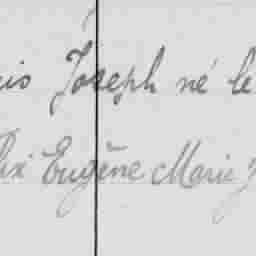 Joseph né le
Eugène Marie